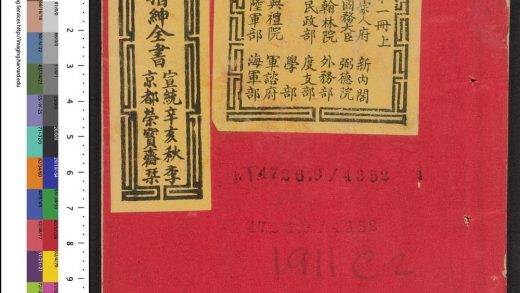 一冊上
宗人府 新內閣
國務大臣 弼德院
翰林院 外務部
民政部 度支部
典禮院 學部
陸軍部 軍諮府
海軍部
搢紳全書
宣統辛亥秋季
京都榮寶齋栞
4726.3/4352
1911 C2
2
3
4
5
6
7
8
9
http://imaging.harvard.edu